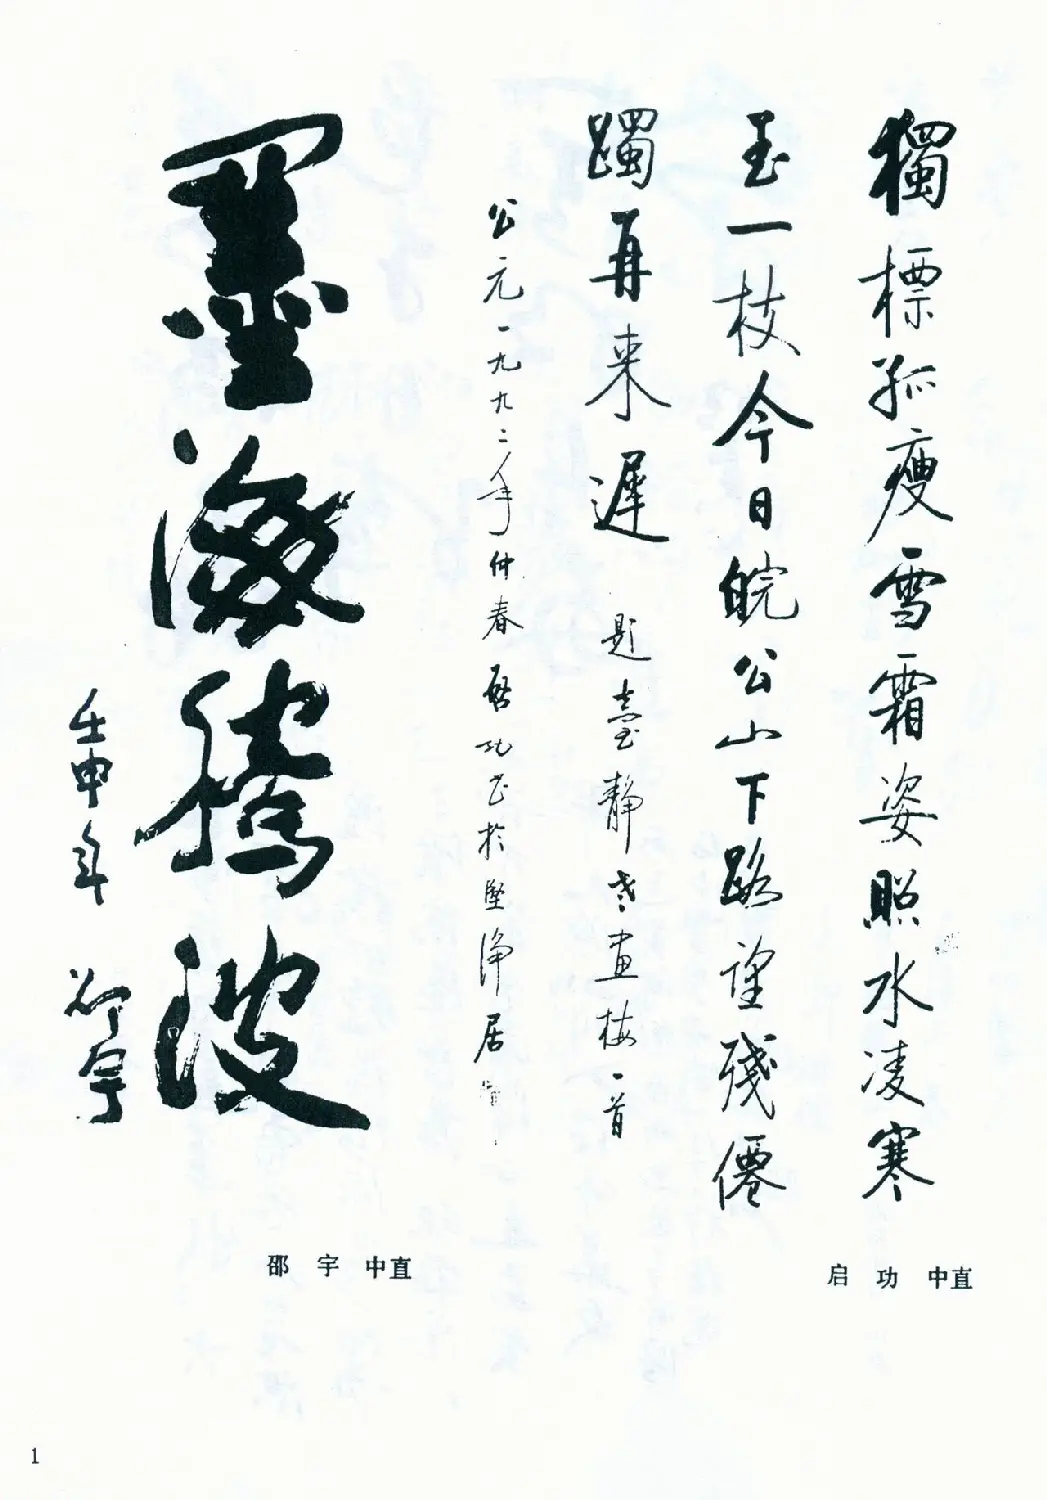 獨標孤瘦雪霜姿照水凌寒
玉一枝今日皖公山下路望殘僊
躅再来遲 題臺靜老畫梅一首
公元一九九二年仲春啓功書於堅淨居
启 功 中直
墨海騰波
壬申年 邵宇
邵 宇 中直
1